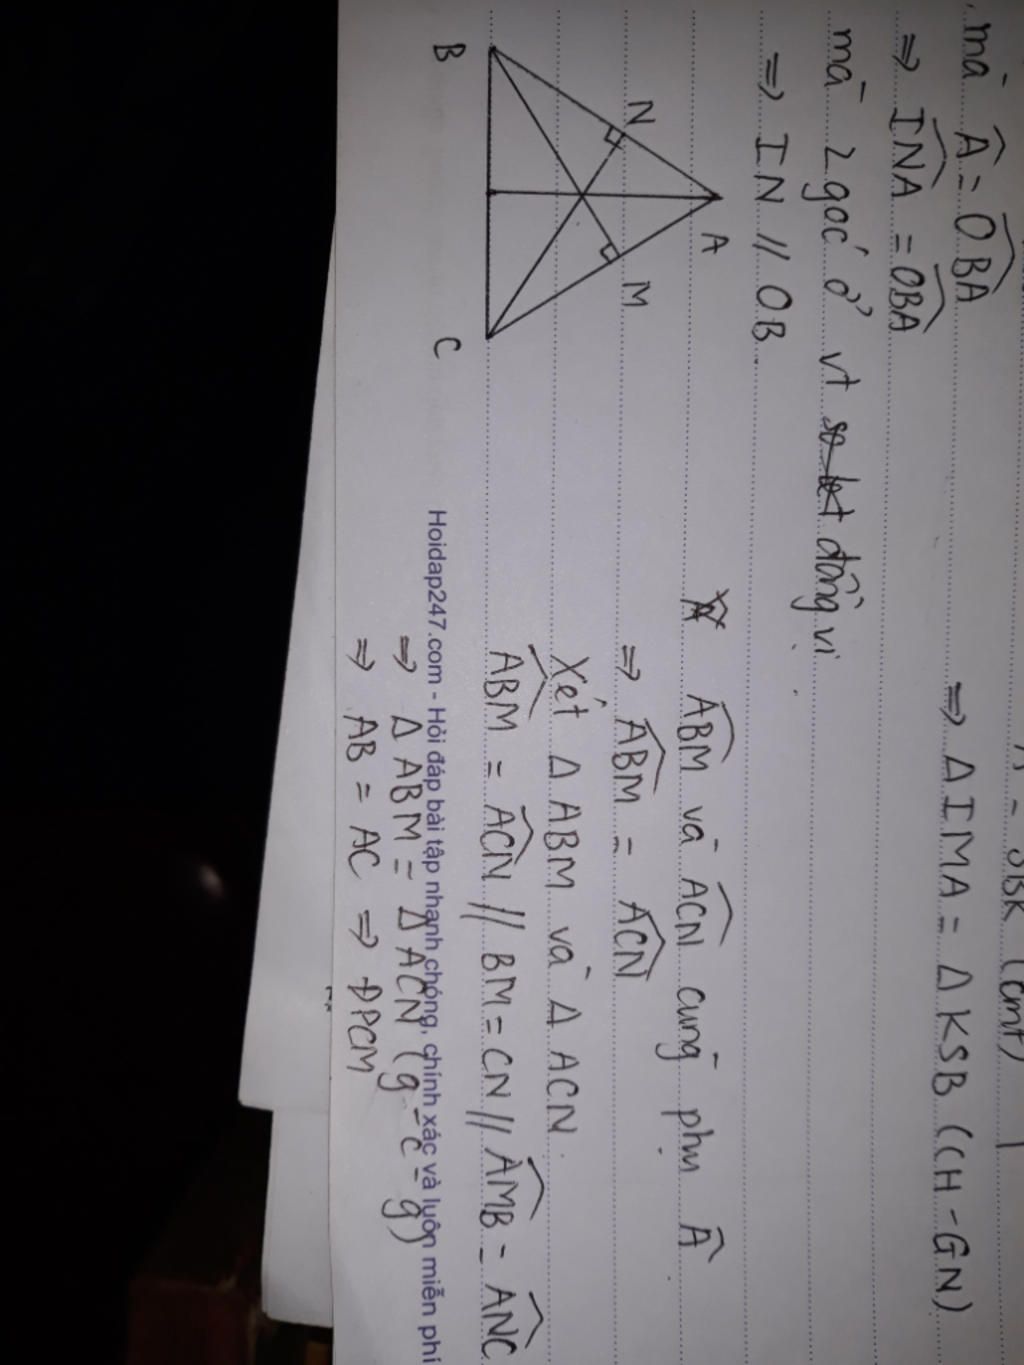 = SBK (cmt)
mà Â = OBA
⇒ ∆IMA = ∆KSB (CH - GN)
⇒ INA = OBA
mà 2 góc ở vt đồng vị
⇒ IN // OB
A
N
M
B
C
ABM và ACN cùng phụ Â
⇒ ABM = ACN
Xét ∆ ABM và ∆ ACN
ABM = ACN // BM = CN // AMB = ANC
⇒ ∆ ABM = ∆ ACN (g - c - g)
⇒ AB = AC ⇒ ĐPCM
Hoidap247.com - Hỏi đáp bài tập nhanh chóng, chính xác và luôn miễn phí